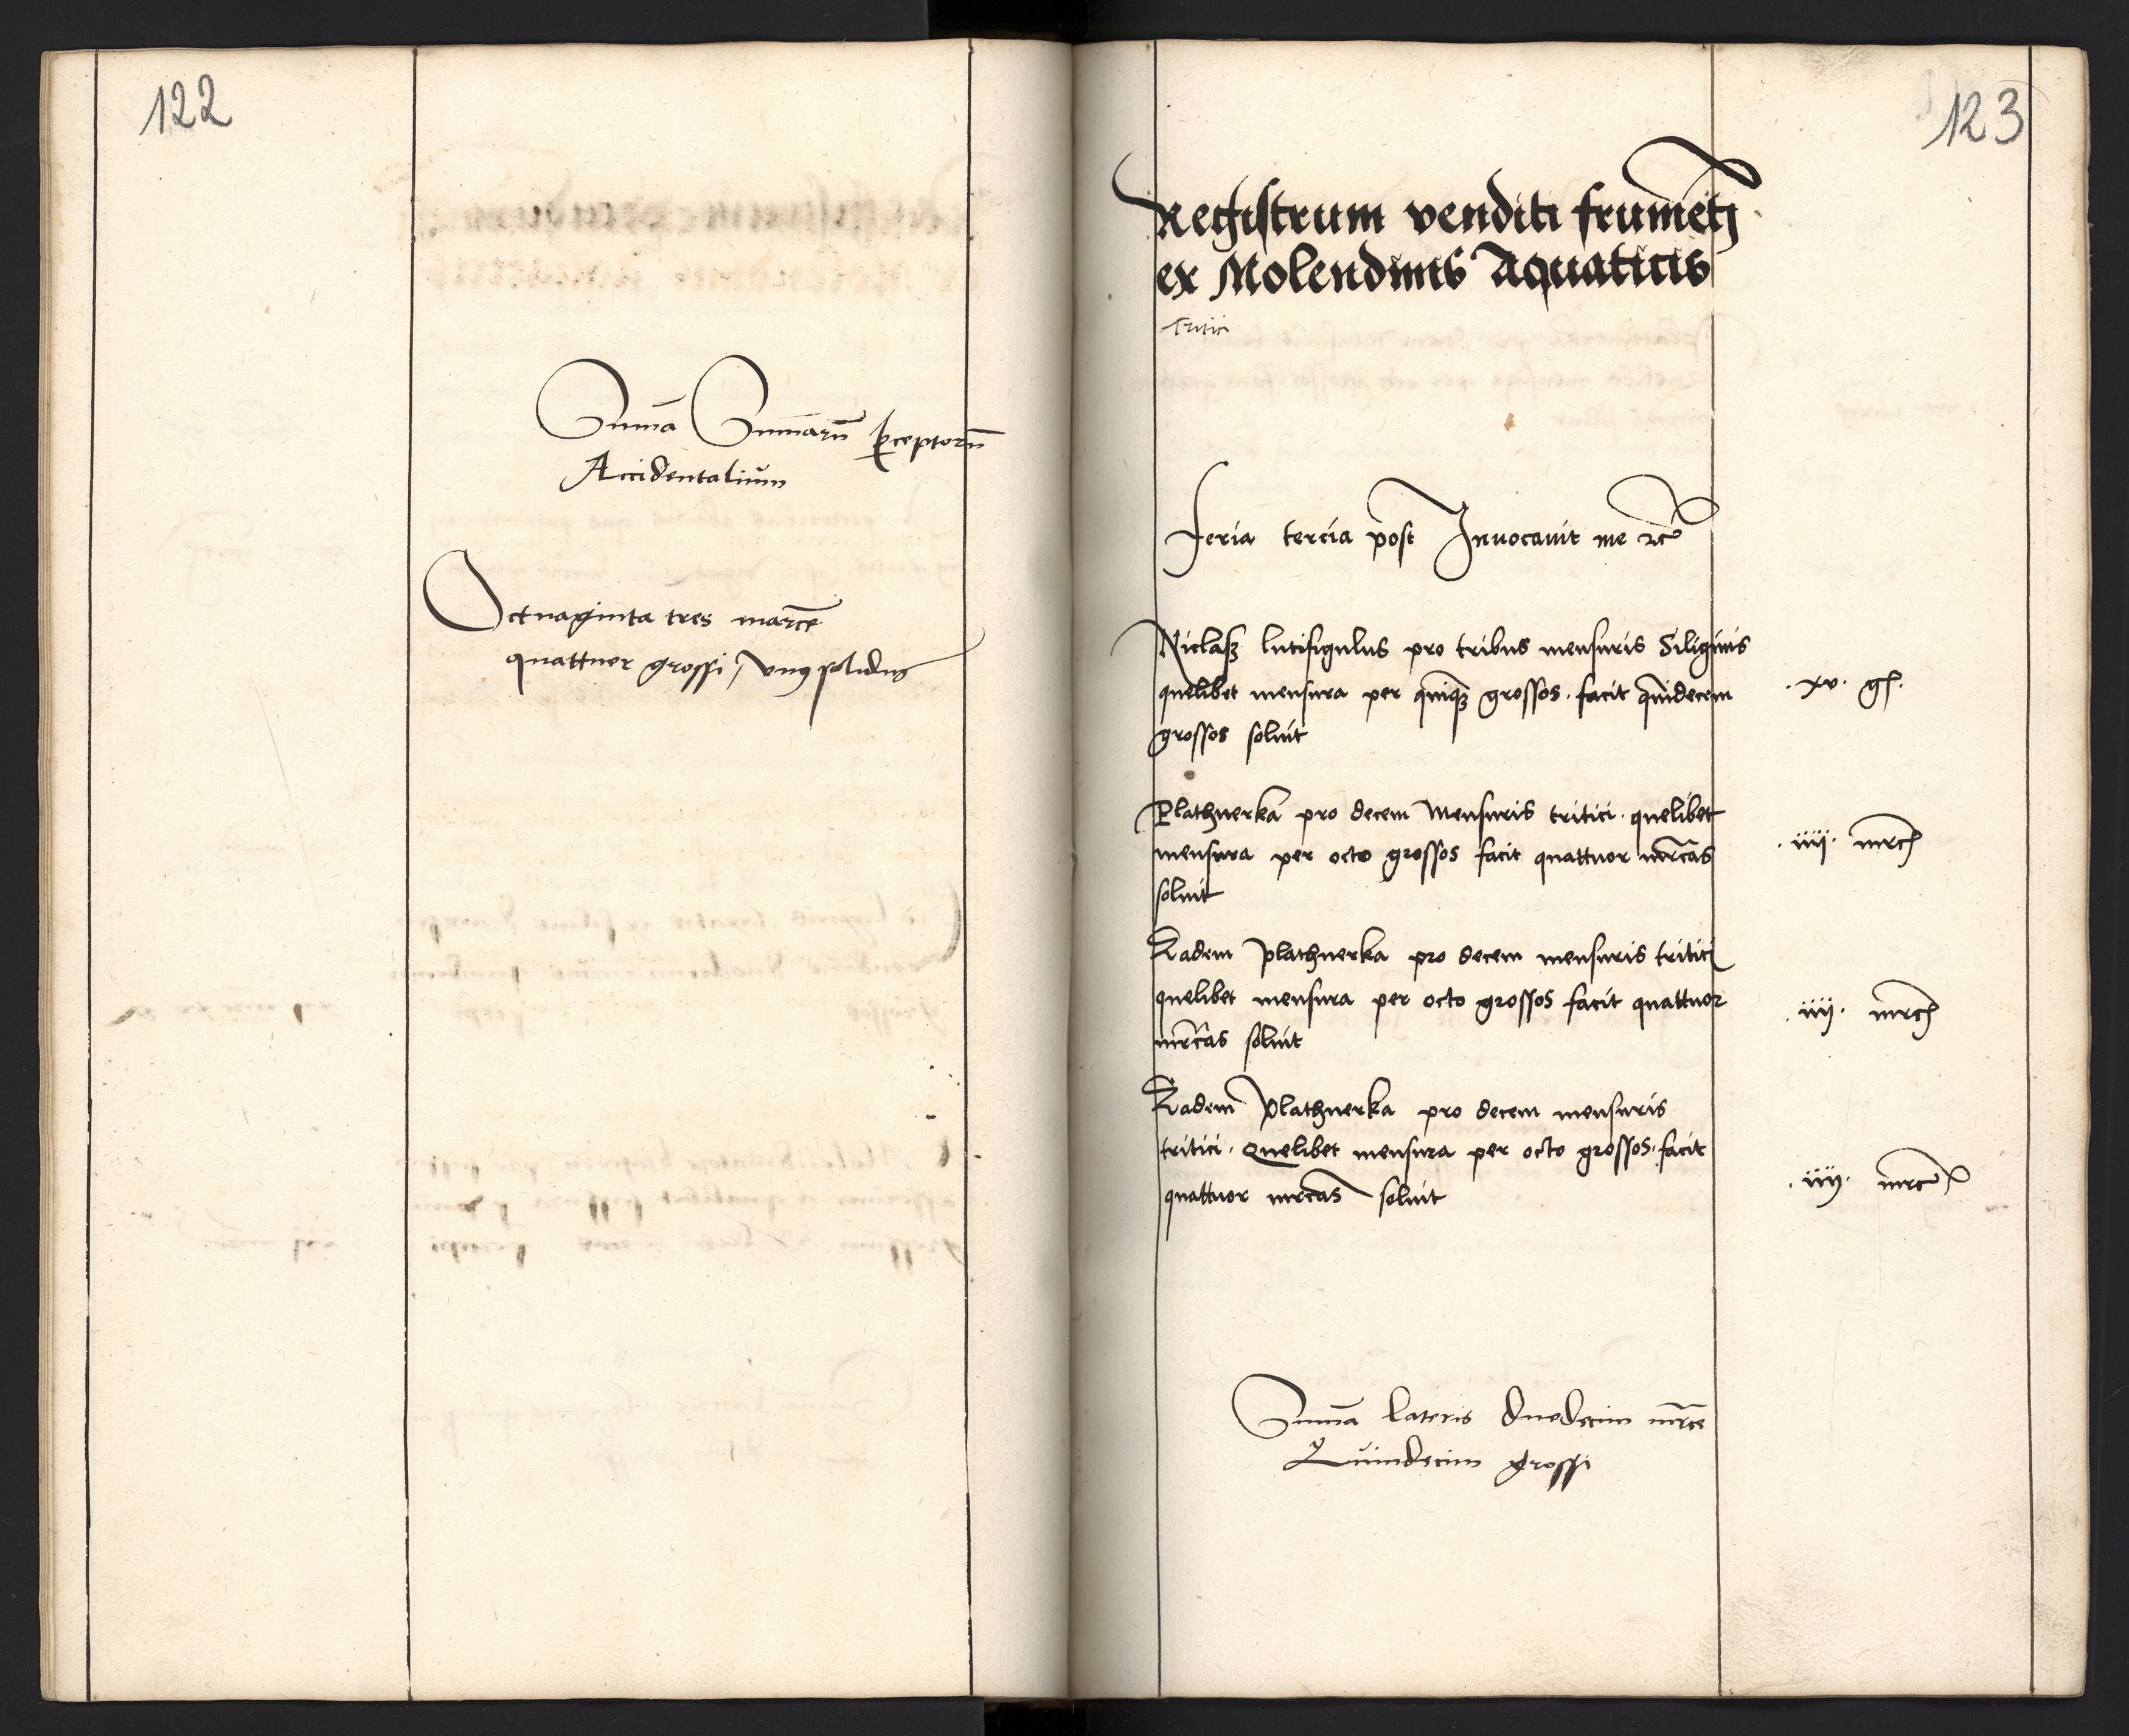 122
Suma̅ Sum̅aru̅ p̱ceptoru̅
Accidentaliu̅m
Octuaginta tres marce̅
quattuor grossi / vnꝯ solidus
123
Registrum venditi frume̅tj
ex Molendinis Aquaticis
Tritici
Feria tercia post Inuocauit me ꝛc̅
Niclasz lutifigulus pro tribus mensuris Siliginis
quelibet mensura per quinqꝫ grossos · facit quindecem
grossos soluit
· xv · gſ ·
Plathnerka pro decem Mensuris tritici · quelibet
mensura per octo grossos facit quattuor mr̅cas
soluit
· iiij · mrcꝭ
Eadem plathnerka pro decem mensuris tritici
quelibet mensura per octo grossos facit quattuor
mr̅cas soluit
· iiij · mrcꝭ
Eadem plathnerka pro decem mensuris
tritici · Quelibet mensura per octo grossos · facit
quattuor mrcas soluit
· iiij · mrcꝭ
Sum̅a lateris duodecim mr̅ce
Quindecim grossi